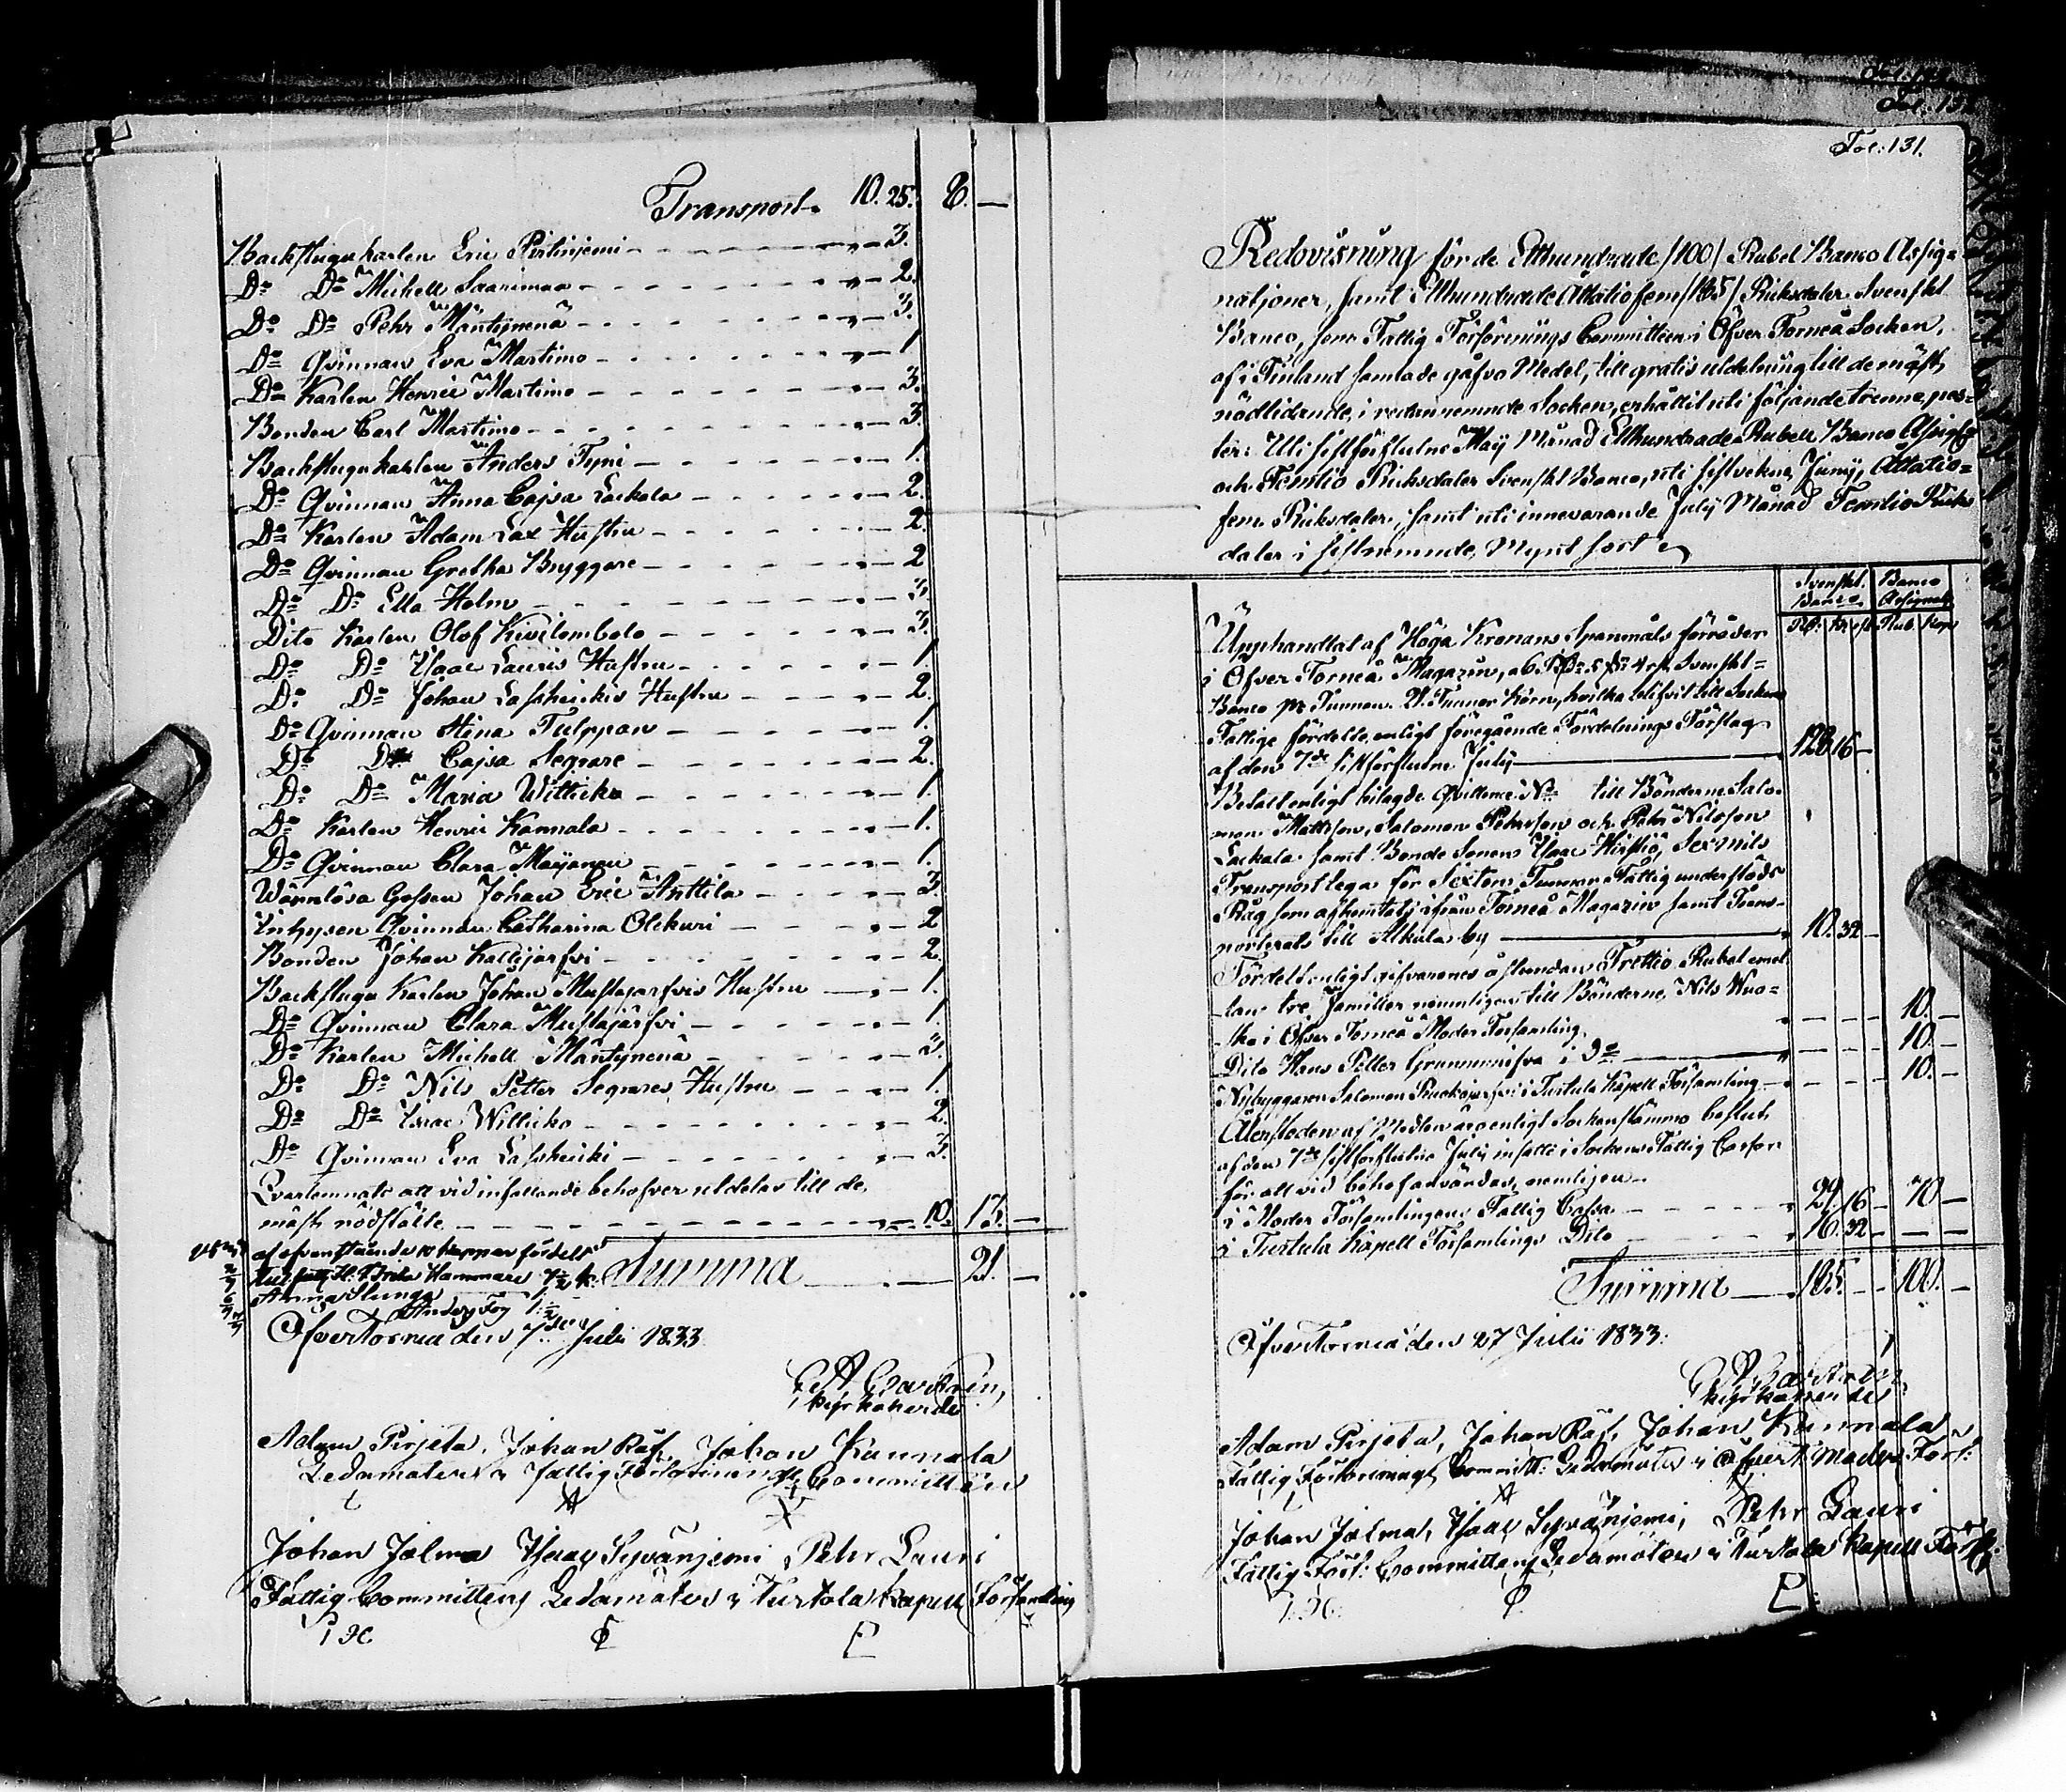 Transport. 10. 25. 8. —
Backstugukarlen Eric Pirtinjemi - - - „ — 3.
Do Do Michell Saarimaa - - - „ — 2.
Do Do Pehr Mäntynenä - - - „ — 3.
Do Qvinnan Eva Martimo - - - „ — 1
Do Karlen Henric Martimo - - - „ — 3.
Bonden Carl Martimo - - - „ — 3.
Backstugukarlen Anders Fyni - - - „ — 1.
Do Qvinnan Anna Cajsa Lackala - - - „ — 2.
Do Karlen Adam Lax Hustru - - - „ — 2.
Do Qvinnan Gretha Bryggare - - - „ — 2
Do Do Ella Holm - - - „ — 3.
Dito Karlen Olof Kivilombolo - - - „ — 3.
Do Do Isaac Lauris Hustru - - - „ — 1
Do Do Johan Lassheickis Hustru - - - „ — 2.
Do Qvinnan Stina Tulppan - - - „ — 1.
Do Do Cajsa Segrare - - - „ — 2.
Do Do Maria Witticko - - - „ — 1.
Do Karlen Henric Kannala - - - „ — 1.
Do Qvinnan Clara Maijanen - - - „ — 1.
Wärnlösa Gossen Johan Eric Anttila - - - „ — 3.
Inhysen Qvinnan Catharina Olckuri - - - „ — 2
Bonden Johan Kallijärfvi - - - „ — 2.
Backstugu Karlen Johan Mustajärfvis Hustru — „ — 1.
Do Qvinnan Clara Mustajärfvi - - - „ — 1.
Do Karlen Michell Mäntynenä - - - „ — 3.
Do Do Nils Petter Segrares Hustru - - - „ — 1.
Do Do Isaac Witticko - - - 2.
Do Qvinnan Eva Lassheicki - - - „ — 3.
Qvarlemnats att vid infallande behofver utdelas till de
mäst nödstälte - - - „ — 10. 13. —
af ofvanstående 10 kappar fördelt
H. Brita Hammare 7½ k: Summa — 21. —
Anna Slunga 1.
Anders Foy 1.½
Öfvertorneå den 7de Julii 1833.
Kyrkoherde
Adam Pirjeta, Johan Räf, Johan Kannala
Ledamöter i Fattig Försörnings Committéen
Johan Jolma Isaac Syvänjemi Pehr Lauri
Fattig Committens Ledamöter i Turtola Kapell Församling
Fol: 131.
Redovisning för de Etthundrade /100/ Rubel Banco Assig=
nationer, samt Etthundrade Åttatiofem /185/ Riksdaler Svenskt
Banco, som Fattig Försörnings Committeen i Öfver Torneå Socken,
af i Finland samlade gåfvo Medel, till gratis utdelning till de mäst
nödlidande, i redannemnde Socken, erhållit uti följande trenne pos=
ter: Uti sistförflutne Maij Månad Etthundrade Rubell Banco Assigt:
och Femtio Riksdaler Svenskt Banco, uti sistvekne Junij, Åttatio=
fem Riksdaler, samt uti innevarande July Månad Femtio Riks
daler i sistnemnde, Mynt sort
Svenskt Banco. Banco Assignat.
Rd: Kr rst Rub. Kop
Upphandlat af Höga Kronans Spanmåls förråder
i Öfver Torneå Magazin, a 6 Rd 5 s: 4 rst. Svenskt=
Banco pr Tunnan 21. Tunnor Korn, hvilka blifvit till Sockens
Fattige fördelte, enligt föregående Fördelnings Förslag
af den 7de sistförflutne July — 128. 16 —
Betalt enligt bilagde Qvittence No till Bönderne Salo-
mon Mattsson, Salomon Pehrsson och Pehr Nilsson
Lackala samt Bonde Sonen Isaac Hirstiö, Sex Mils
Transport lega för Sexton Tunnor Fattig understöds
Råg som afhemtats ifrån Torneå Magazin samt Trans-
porterats till Alkula by — 10. 32 —
Fördelt enligt gifvarenes åstundan Trettio Rubel emel-
lan tre familler nemnligen till Bönderne, Nils Wuo=
ka i Öfver Torneå Moder Församling - - - 10. —
Dito Hans Petter Grannnifva i Do — 10. —
Nybyggaren Salomon Ruokojärfvi i Turtula Kapell Församling — 10. —
Återstoden af Medlen är enligt Sockenstämmo beslut
af den 7de sistförflutne July insatte i Sockens Fattig Cassor
för att vid behof användas, nemligen
i Moder Församlingens Fattig Cassa - - - 29. 16 — 70 —
i Turtula Kapell Församlings Dito - - - 16. 32 — — —
Summa — 185. — 100. —
Öfver Torneå den 27 Julii 1833.
Kyrkoherde
Adam Pirjeta, Johan Räf, Johan Kannala
Fattig Försörnings Committ: Ledamöter i Öfvert: Moder Förs:
Johan Jolma, Isaac Syvänjemi, Pehr Lauri
Fattig Förs: Committens Ledamöter i Turtola Kapell Förs: